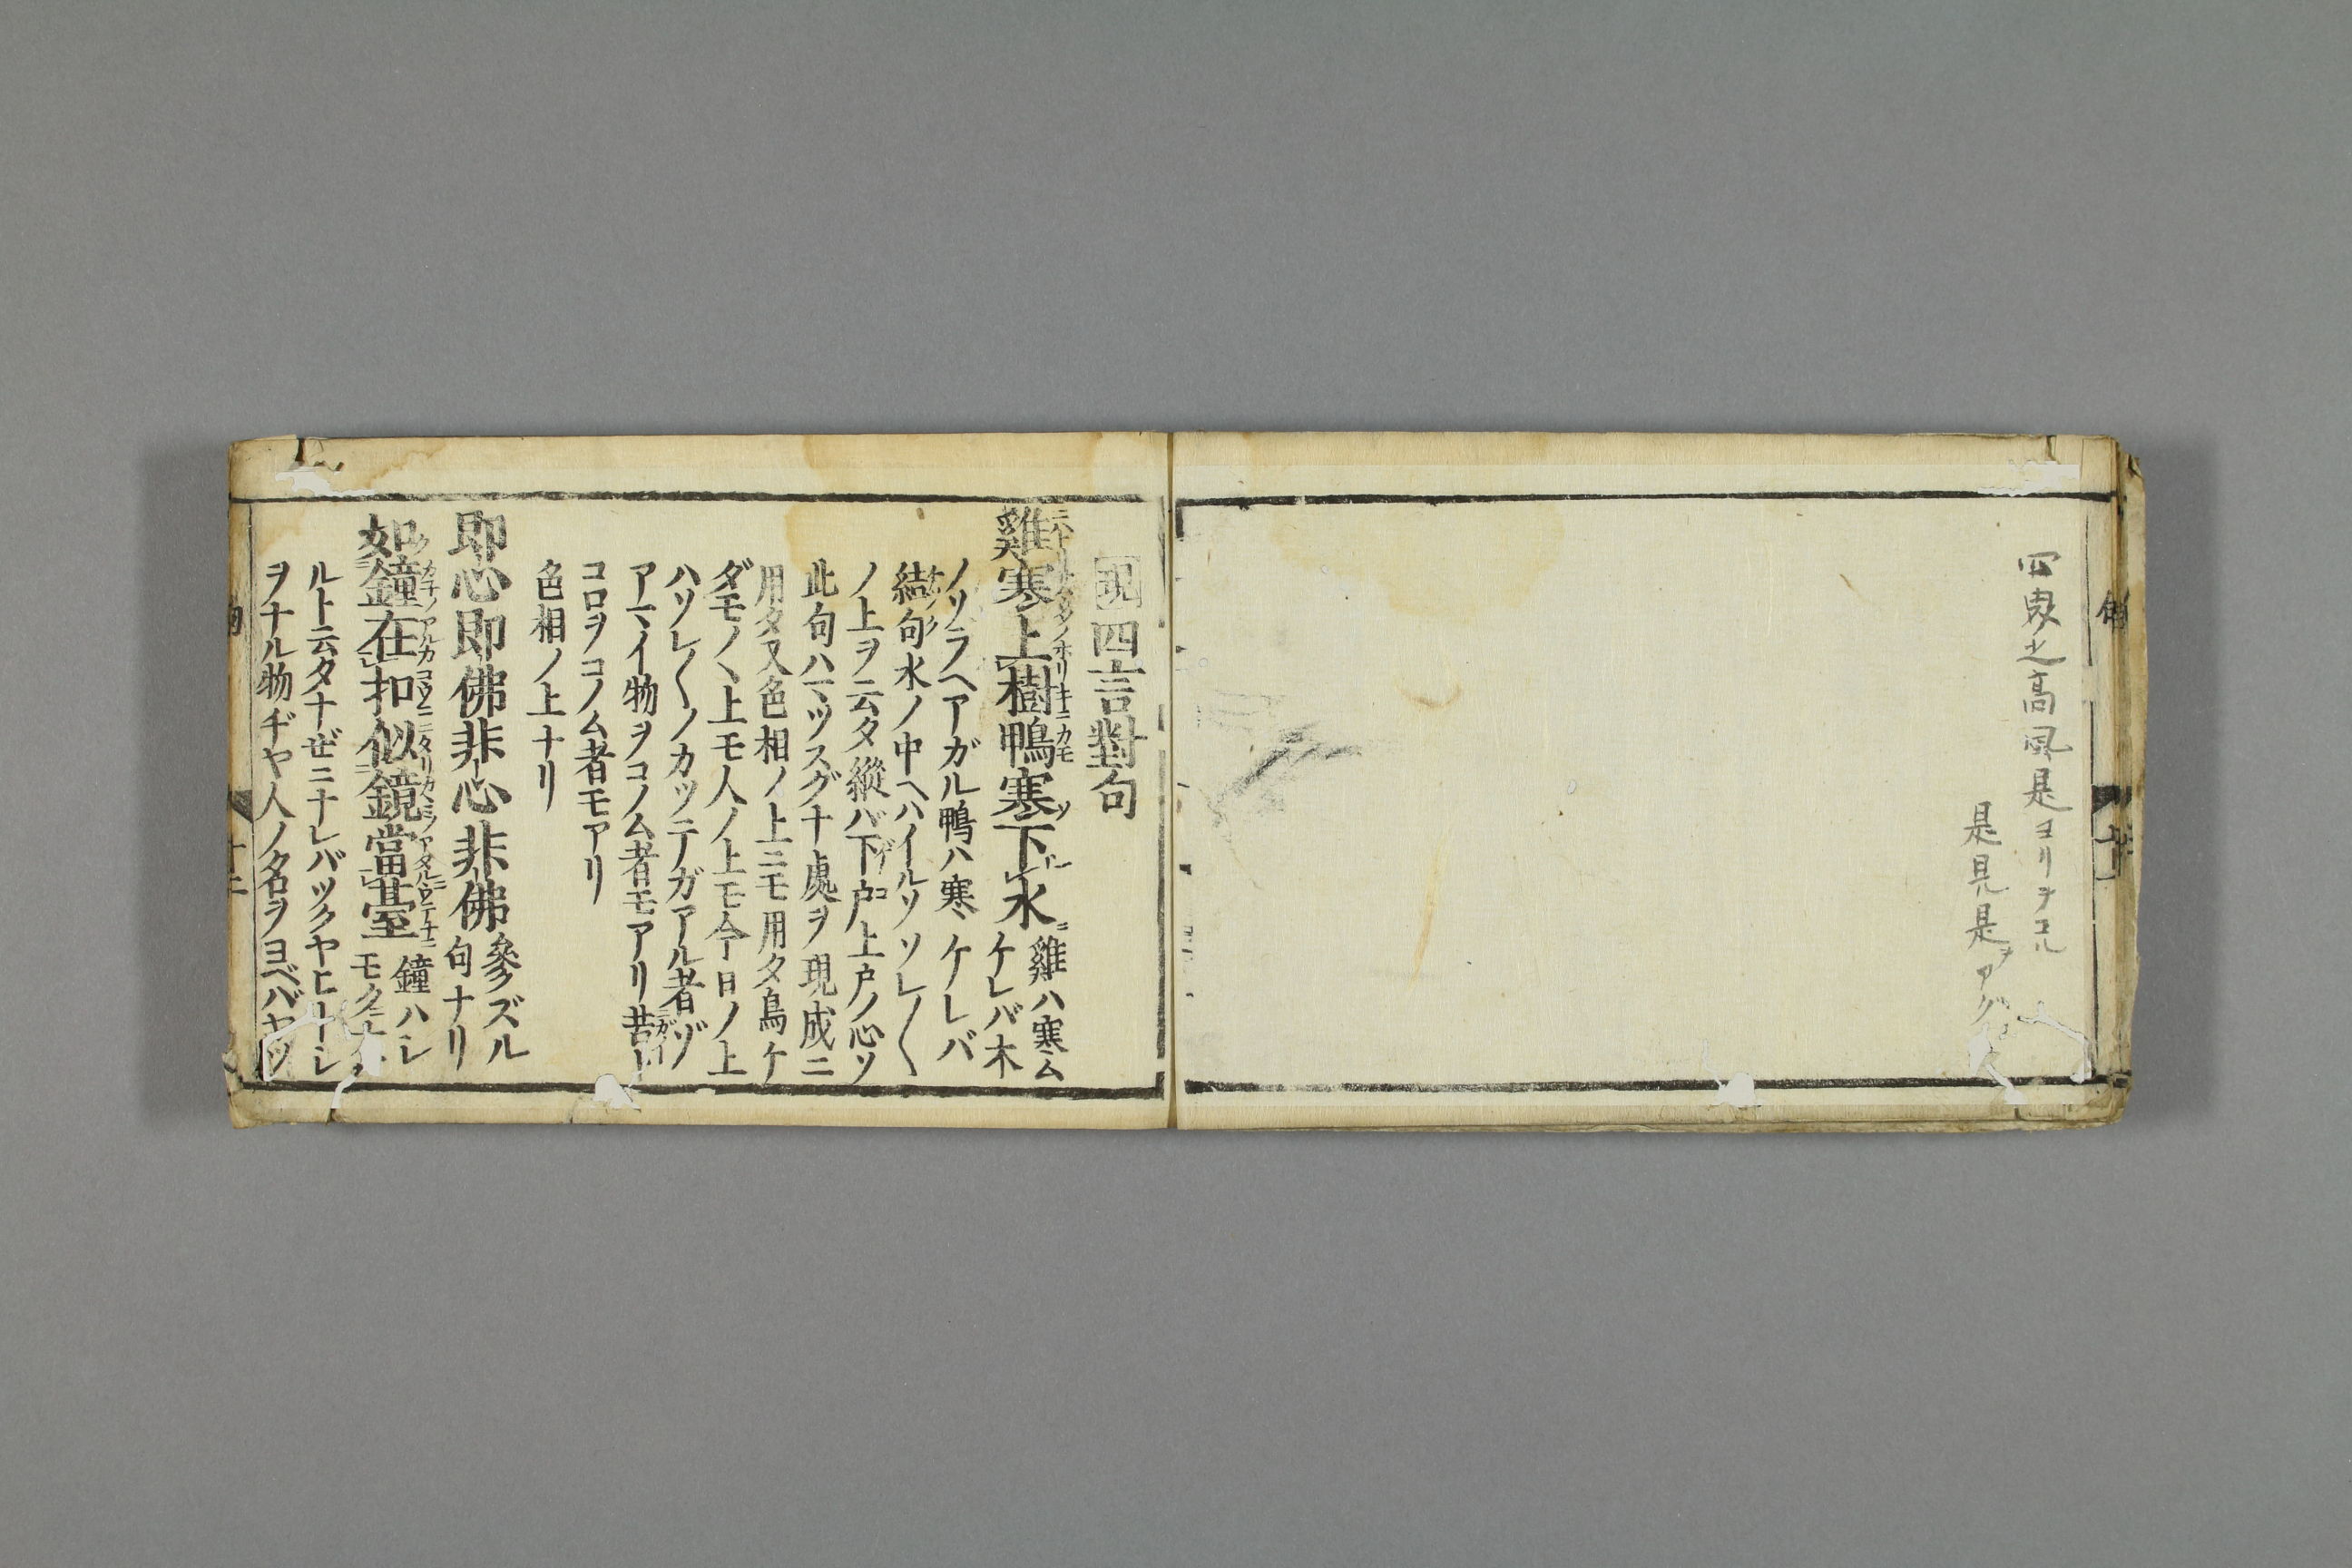 四夷之高風是ヨリヲコル
是見是ヲアグ
現 四言對句
雞寒上樹鴨寒下水 雞ハ寒ム
ケレバ木
ノソラヘアガル鴨ハ寒ケレバ
結句水ノ中ヘハイルソソレ〱
ノ上ヲ云タ縱バ下戸上戸ノ心ソ
此句ハマツスグナ處ヲ現成ニ
用タ又色相ノ上ニモ用タ鳥ケ
ダモノヽ上モ人ノ上モ今日ノ上
ハソレ〱ノカツテガアル者ゾ
アマイ物ヲコノム者モアリ苦
コロヲコノム者モアリ
色相ノ上ナリ
即心即佛非心非佛 參ズル
句ナリ
如鐘在扣似鏡當臺 鐘ハレ
モクニ
ルト云タナゼニナレバツクヤヒ
ヲナル物ヂヤ人ノ名ヲヨベバヤツ
十二